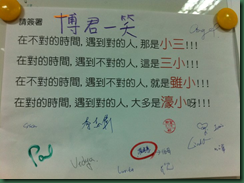 請簽署
博君一笑
在不對的時間, 遇到對的人, 那是小三!!!
在對的時間, 遇到不對的人, 這是三小!!!
在不對的時間, 遇到不對的人, 就是雖小!!!
在對的時間, 遇到對的人, 大多是濠小呀!!!
Paul